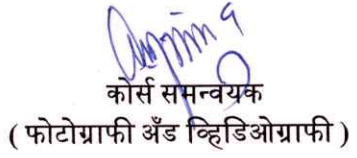 कोर्स समन्वयक
( फोटोग्राफी अँड व्हिडिओग्राफी )